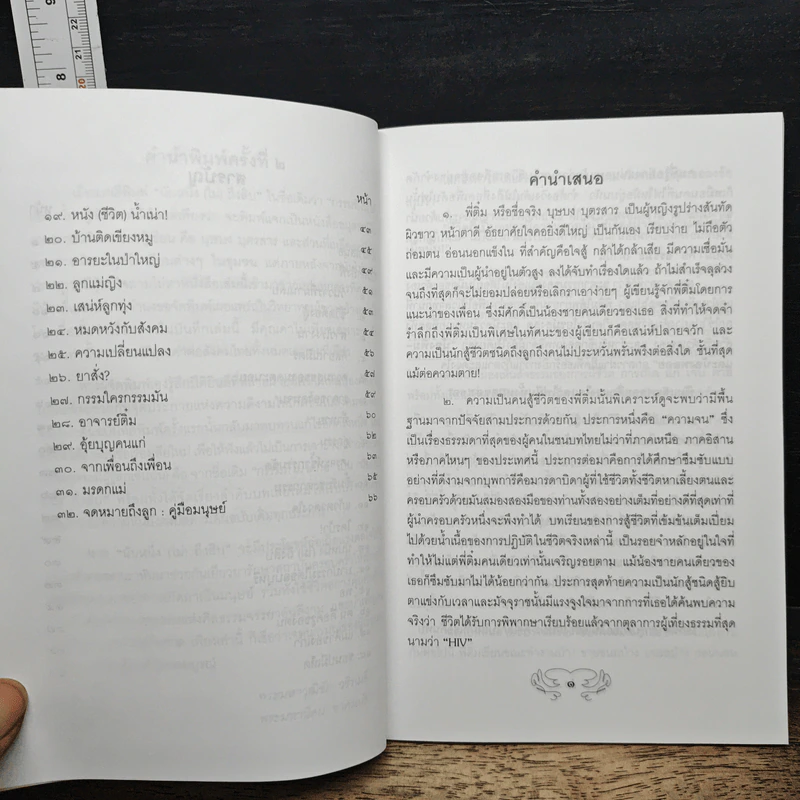 8
9
20
21
22
หน้า
๑๙. หนัง (ชีวิต) น้ำเน่า! ๔๓
๒๐. บ้านติดเขียงหมู ๔๕
๒๑. อารยะในป่าใหญ่ ๔๙
๒๒. ลูกแม่ญิง ๕๑
๒๓. เสน่ห์ลูกทุ่ง ๕๓
๒๔. หมดหวังกับสังคม ๕๔
๒๕. ความเปลี่ยนแปลง ๕๖
๒๖. ยาสั่ง? ๕๗
๒๗. กรรมใครกรรมมัน ๕๙
๒๘. อาจารย์ติ๋ม ๖๐
๒๙. อุ้ยบุญคนแก่ ๖๒
๓๐. จากเพื่อนถึงเพื่อน ๖๓
๓๑. มรดกแม่ ๖๕
๓๒. จดหมายถึงลูก : คู่มือมนุษย์ ๖๖
คำนำเสนอ
๑. พี่ติ๋ม หรือชื่อจริง บุษบง บุตรสาร เป็นผู้หญิงรูปร่างสันทัด
ผิวขาว หน้าตาดี อัธยาศัยใจคอยิ่งดีใหญ่ เป็นกันเอง เรียบง่าย ไม่ถือตัว
ถ่อมตน อ่อนนอกแข็งใน ที่สำคัญคือใจสู้ กล้าได้กล้าเสีย มีความเชื่อมั่น
และมีความเป็นผู้นำอยู่ในตัวสูง ลงได้จับทำเรื่องใดแล้ว ถ้าไม่สำเร็จลุล่วง
จนถึงที่สุดก็จะไม่ยอมปล่อยหรือเลิกราเอาง่ายๆ ผู้เขียนรู้จักพี่ติ๋มโดยการ
แนะนำของเพื่อน ซึ่งมีศักดิ์เป็นน้องชายคนเดียวของเธอ สิ่งที่ทำให้จดจำ
รำลึกถึงพี่ติ๋มเป็นพิเศษในทัศนะของผู้เขียนก็คือเสน่ห์ปลายจวัก และ
ความเป็นนักสู้ชีวิตชนิดถึงลูกถึงคนไม่ประหวั่นพรั่นพรึงต่อสิ่งใด ชั้นที่สุด
แม้ต่อความตาย!
๒. ความเป็นคนสู้ชีวิตของพี่ติ๋มนั้นพิเคราะห์ดูจะพบว่ามีพื้น
ฐานมาจากปัจจัยสามประการด้วยกัน ประการหนึ่งคือ “ความจน” ซึ่ง
เป็นเรื่องธรรมดาที่สุดของผู้คนในชนบทไทยไม่ว่าที่ภาคเหนือ ภาคอิสาน
หรือภาคไหนๆ ของประเทศนี้ ประการต่อมาคือการได้ศึกษาซึมซับแบบ
อย่างที่ดีงามจากบุพการีคือมารดาบิดาผู้ที่ใช้ชีวิตทั้งชีวิตหาเลี้ยงตนและ
ครอบครัวด้วยมันสมองสองมือของท่านทั้งสองอย่างเต็มที่อย่างดีที่สุดเท่าที่
ผู้นำครอบครัวหนึ่งจะพึงทำได้ บทเรียนของการสู้ชีวิตที่เข้มข้นเต็มเปี่ยม
ไปด้วยน้ำเนื้อของการปฏิบัติในชีวิตจริงเหล่านี้ เป็นรอยจำหลักอยู่ในใจที่
ทำให้ไม่แต่พี่ติ๋มคนเดียวเท่านั้นเจริญรอยตาม แม้น้องชายคนเดียวของ
เธอก็ซึมซับมาไม่ได้น้อยกว่ากัน ประการสุดท้ายความเป็นนักสู้ชนิดสู้ยิบ
ตาแข่งกับเวลาและมัจจุราชนั้นมีแรงจูงใจมาจากการที่เธอได้ค้นพบความ
จริงว่า ชีวิตได้รับการพิพากษาเรียบร้อยแล้วจากตุลาการผู้เที่ยงธรรมที่สุด
นามว่า “HIV”
๑